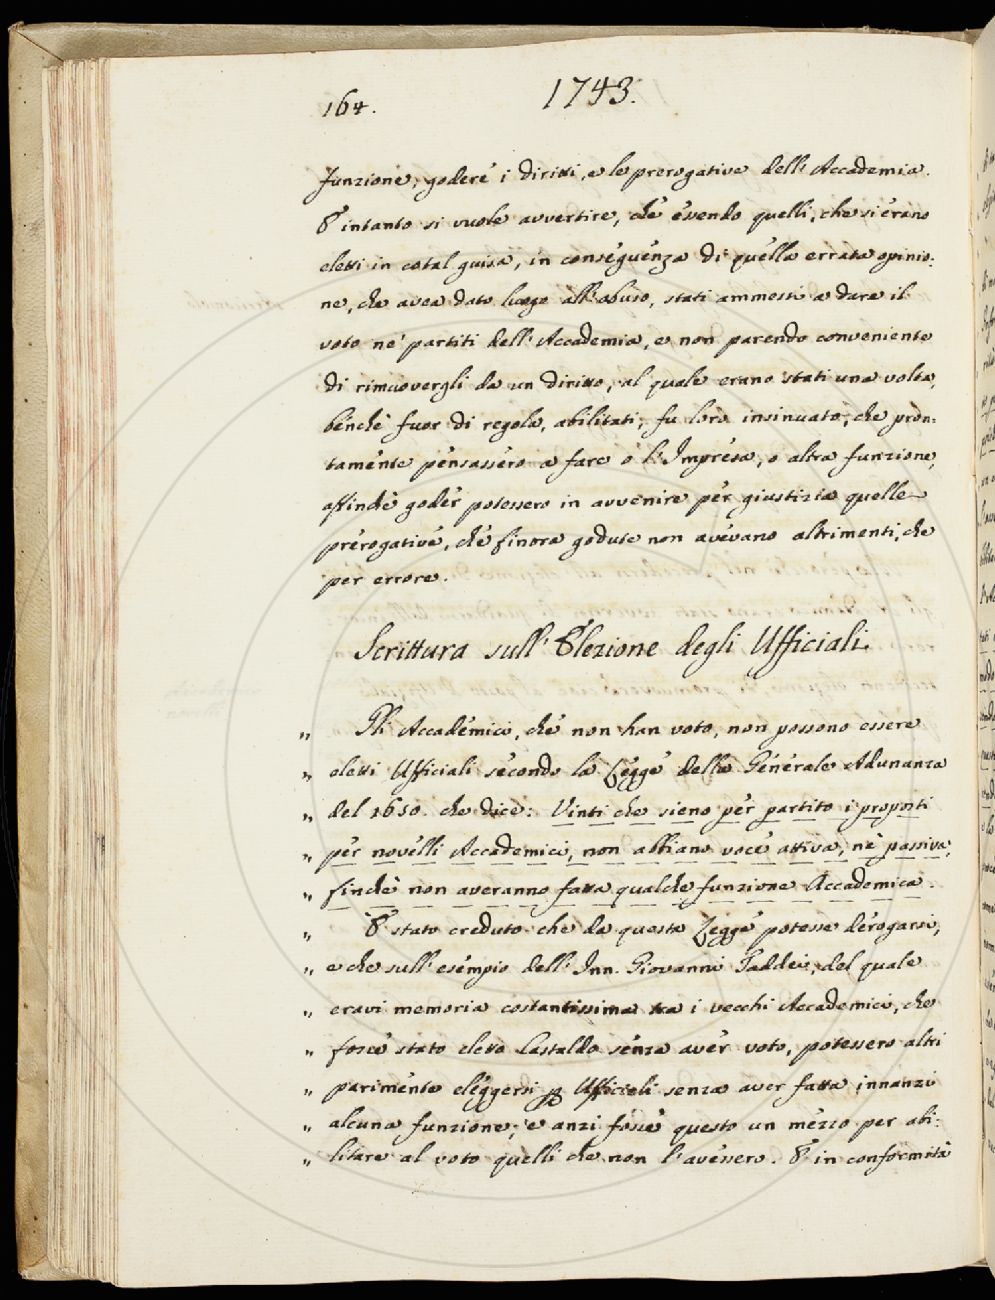 164.
1743.
funzione, godere i diritti, e le prerogative dell'Accademia.
E' intanto si vuole avvertire, che essendo quelli, che si erano
eletti in cotal guisa, in conseguenza di quella errata opinio:
ne, che avea dato luogo all'abuso, stati ammessi a dare il
voto ne' partiti dell'Accademia, e non parendo conveniente
di rimuovergli da un diritto, al quale erano stati una volta,
benchè fuor di regola, abilitati; fu loro insinuato, che pron:
tamente pensassero a fare o l'Impresa, o altra funzione,
affinchè goder potessero in avvenire per giustizia quelle
prerogative, che finora godute non avevano altrimenti, che
per errore.
Scrittura sull'Elezione degli Ufficiali.
„ Gli Accademici, che non han voto, non possono essere
„ eletti Ufficiali secondo la Legge della Generale Adunanza
„ del 1650. che dice: Vinti che sieno per partito i proposti
„ per novelli Accademici, non abbiano voce attiva, nè passiva,
„ finchè non averanno fatta qualche funzione Accademica.
„ E' stato creduto che da questa Legge potesse derogarsi,
„ e che sull'esempio dell'Inn. Giovanni Taddei, del quale
„ eravi memoria costantissima tra i vecchi Accademici, che
„ fosse stato eletto Castaldo senza aver voto, potessero altri
„ parimente eleggersi p Ufficiali senza aver fatta innanzi
„ alcuna funzione; e anzi fosse questo un mezzo per abi:
„ litare al voto quelli che non l'avessero. E' in conformità